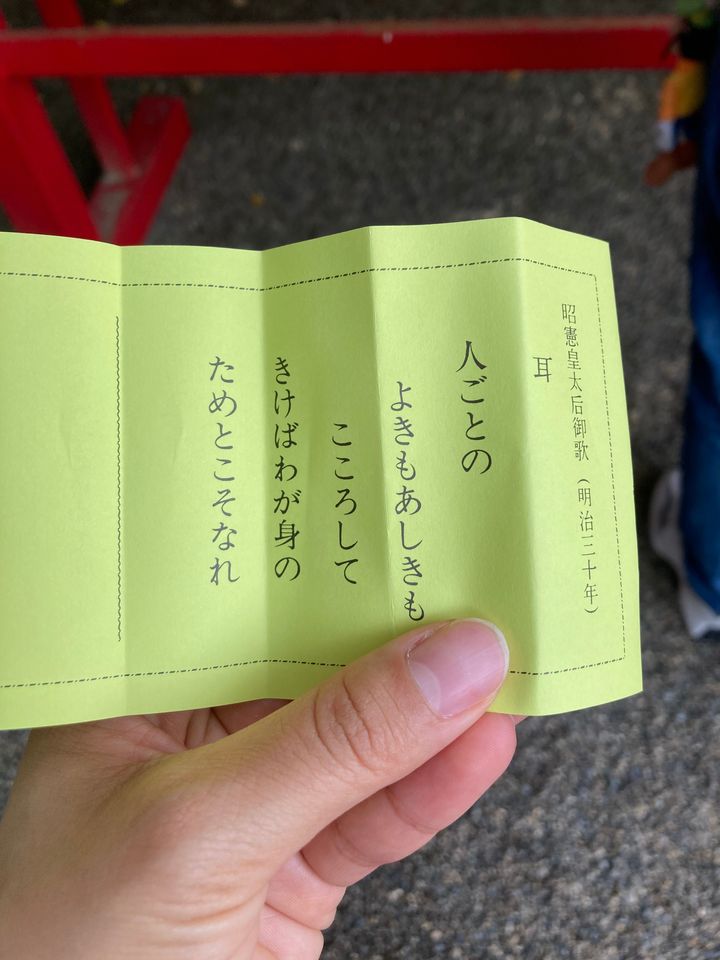 昭憲皇太后御歌（明治三十年）
耳
人ごとの
よきもあしきも
こころして
きけばわが身の
ためとこそなれ